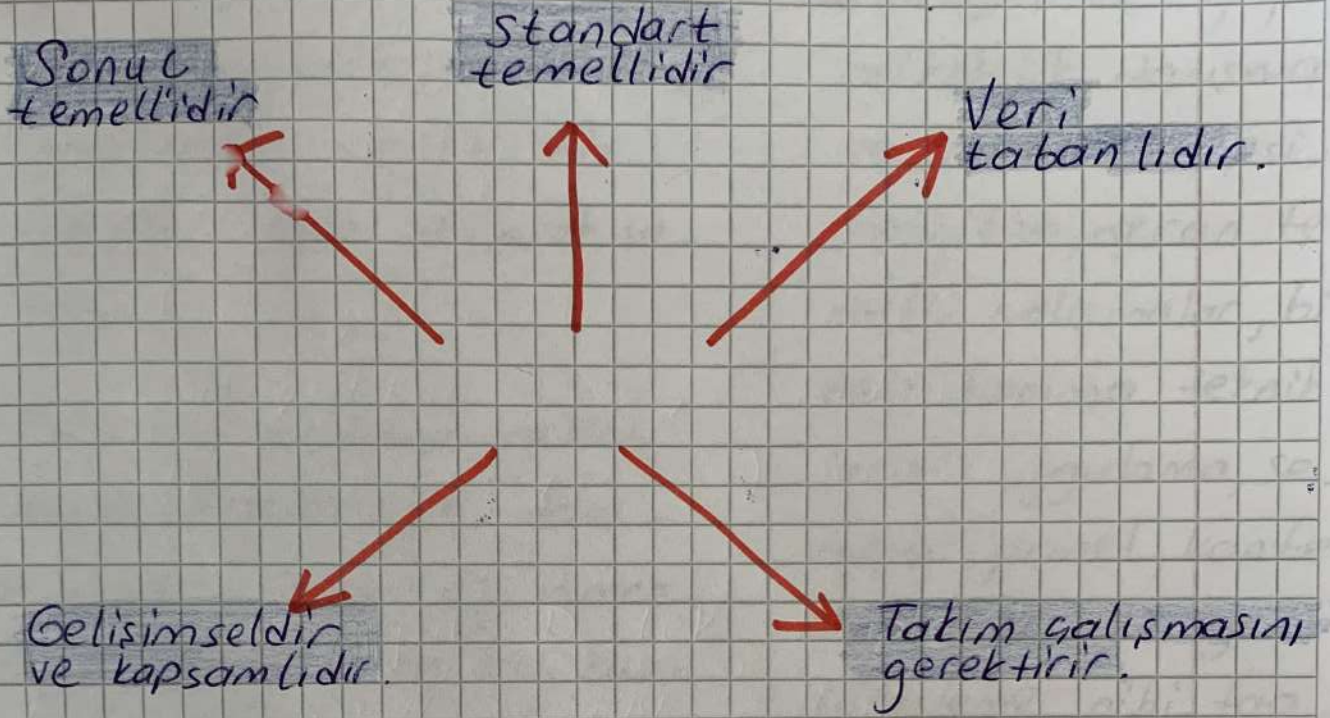 Sonuc
temellidir
Standart
temellidir
Veri
tabanlıdır.
Gelişimseldir
ve kapsamlıdır.
Takım çalışmasını
gerektirir.